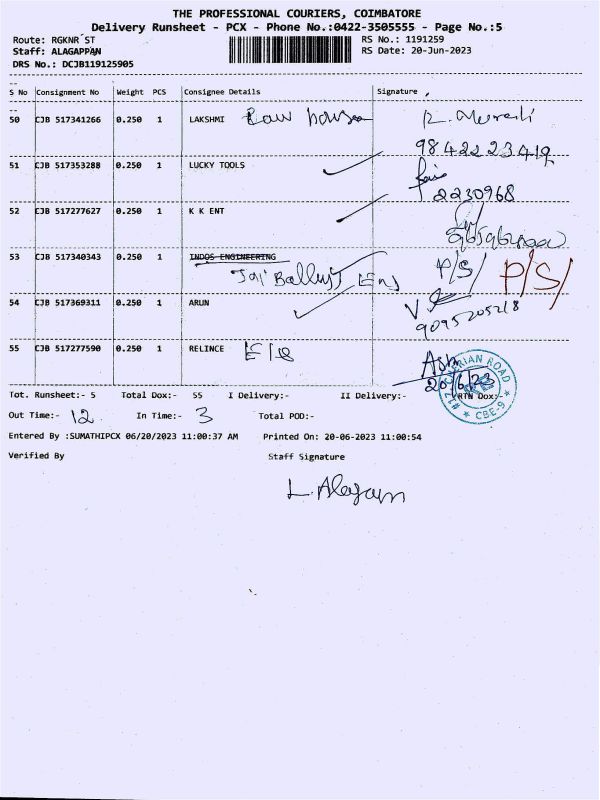 THE PROFESSIONAL COURIERS, COIMBATORE
Delivery Runsheet - PCX - Phone No.:0422-3505555 - Page No.:5
Route: RGKNR ST RS No.: 1191259
Staff: ALAGAPPAN RS Date: 20-Jun-2023
DRS No.: DCJB119125905
S No Consignment No Weight PCS Consignee Details Signature
50 CJB 517341266 0.250 1 LAKSHMI
98422 23419
51 CJB 517353288 0.250 1 LUCKY TOOLS
2230968
52 CJB 517277627 0.250 1 K K ENT
53 CJB 517340343 0.250 1 INDOS ENGINEERING P/S/ P/S/
54 CJB 517369311 0.250 1 ARUN
9095205218
55 CJB 517277590 0.250 1 RELINCE
20/6/23
Tot. Runsheet:- 5 Total Dox:- 55 I Delivery:- II Delivery:- RTN Dox:-
CBE-9
Out Time:- 12 In Time:- 3 Total POD:-
Entered By :SUMATHIPCX 06/20/2023 11:00:37 AM Printed On: 20-06-2023 11:00:54
Verified By Staff Signature